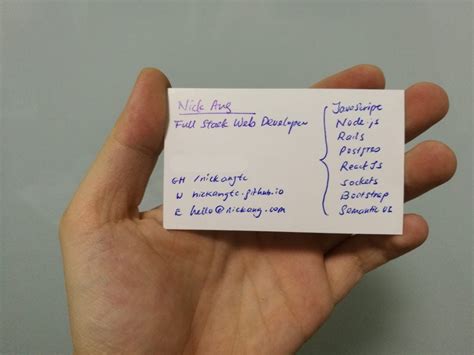 Nick Ang
Full Stack Web Developer
GH /nickangtc
W nickangtc.github.io
E hello@nickang.com
JavaScript
Node.js
Rails
Postgres
ReactJS
sockets
Bootstrap
Semantic UI